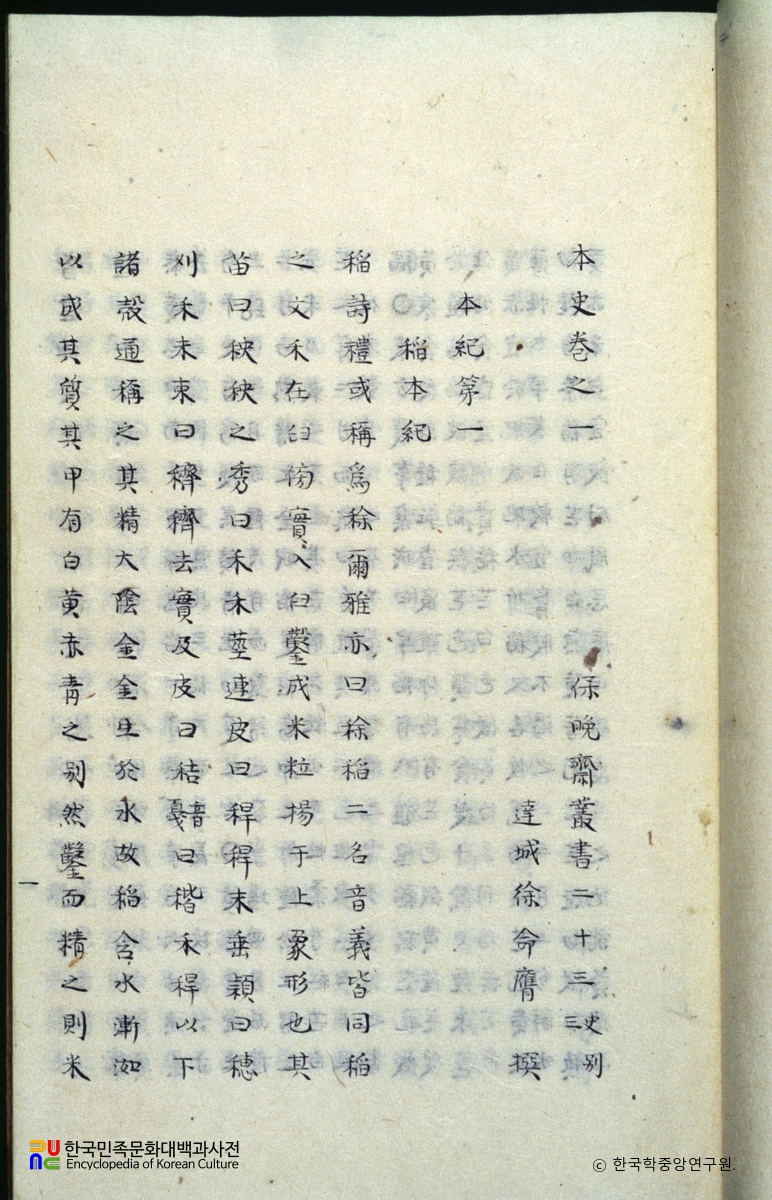 本史卷之一 保晩齋叢書二十三 史別三
達城徐命膺撰
本紀第一
稻本紀
稻詩禮或稱爲稌爾雅亦曰稌稻二名音義皆同稻
之文禾在臼傍實入臼鑿成米粒揚于上象形也其
苗曰秧秧之秀曰禾禾莖連皮曰稈稈末垂穎曰穗
刈禾未束曰穧穧去實及皮曰秸音戛曰稭禾稈以下
諸穀通稱之其精大陰金金生於水故稻含水漸洳
以成其質其甲有白黃赤靑之別然鑿而精之則米
한국민족문화대백과사전
Encyclopedia of Korean Culture
© 한국학중앙연구원.